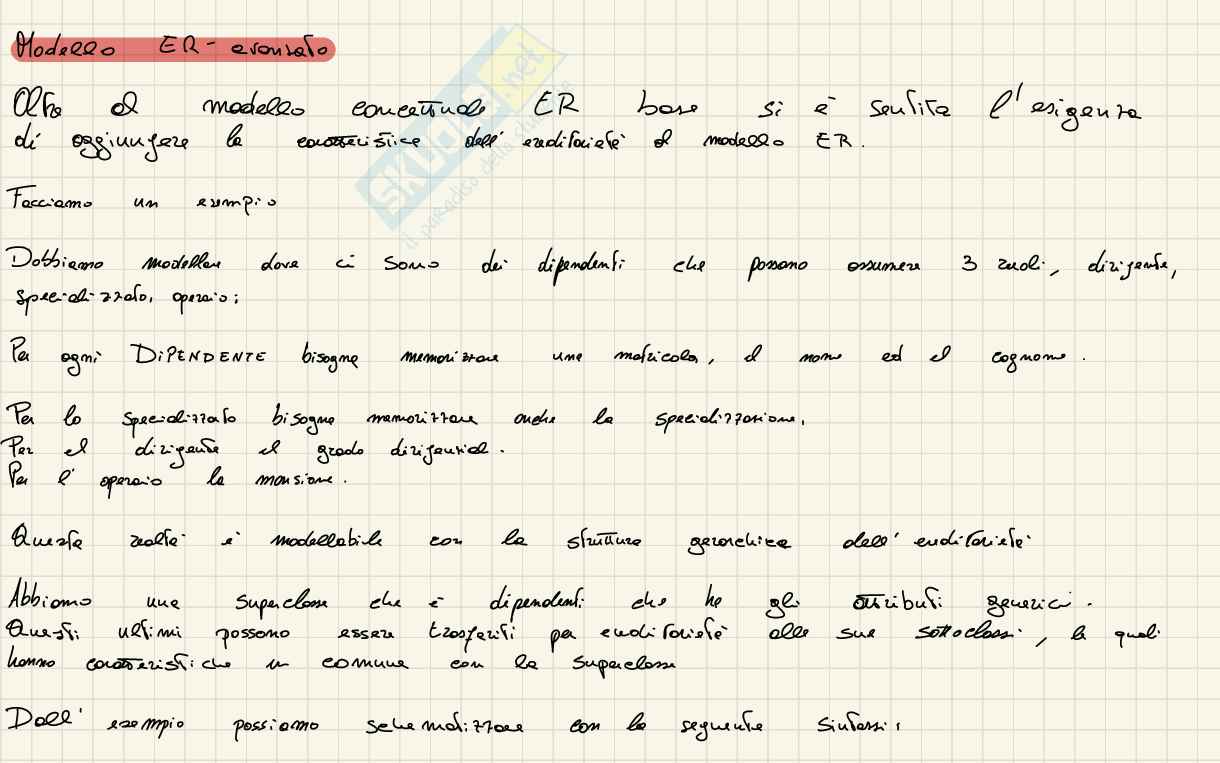 Modello ER-avanzato
Oltre al modello concettuale ER base si è sentita l'esigenza
di aggiungere la caratteristica dell'ereditarietà al modello ER.
Facciamo un esempio
Dobbiamo modellare dove ci sono dei dipendenti che possono assumere 3 ruoli, dirigente,
specializzato, operaio;
Per ogni DIPENDENTE bisogna memorizzare una matricola, il nome ed il cognome.
Per lo specializzato bisogna memorizzare anche la specializzazione.
Per il dirigente il grado dirigenziale.
Per l'operaio la mansione.
Questa realtà è modellabile con la struttura gerarchica dell'ereditarietà
Abbiamo una superclasse che è dipendenti che ha gli attributi generici.
Questi ultimi possono essere trasferiti per ereditarietà alle sue sottoclassi, le quali
hanno caratteristiche in comune con la superclasse
Dall'esempio possiamo schematizzare con la seguente sintassi:
SKUOLA.net
il paradiso dello studente